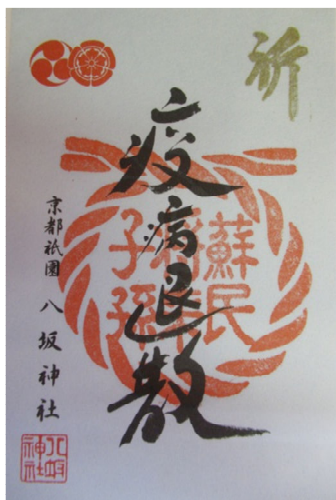 祈
疫病退散
蘇民
子孫
京都祇園 八坂神社
八坂神社